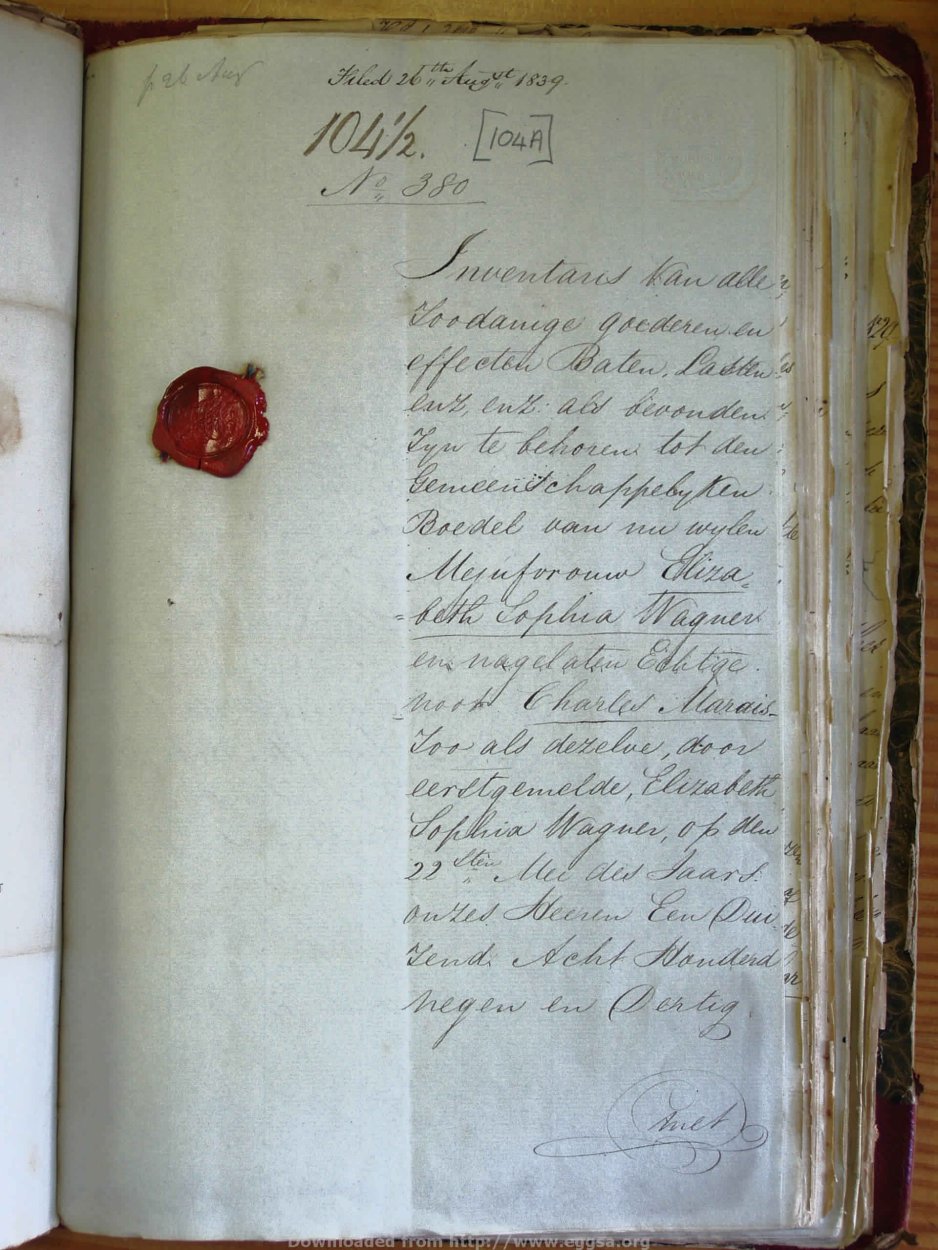 p 26 Aug
Filed 26th Augst 1839.
104½. [104A]
No 380
Inventaris Van alle
Zoodanige goederen en
effecten Baten, Lasten
enz, enz: als bevonden
Zyn te behoren tot den
Gemeenschappelyken
Boedel van nu wylen
Mejufvrouw Eliza=
=beth Sophia Wagner
en nagelaten Echtge
noot Charles Marais
Zoo als dezelve, door
eerstgemelde, Elizabeth
Sophia Wagner, op den
22sten Mei des Jaars
onzes Heeren Een Dui
zend Acht Honderd
negen en Dertig.
met
120
Downloaded from http://www.eggsa.org